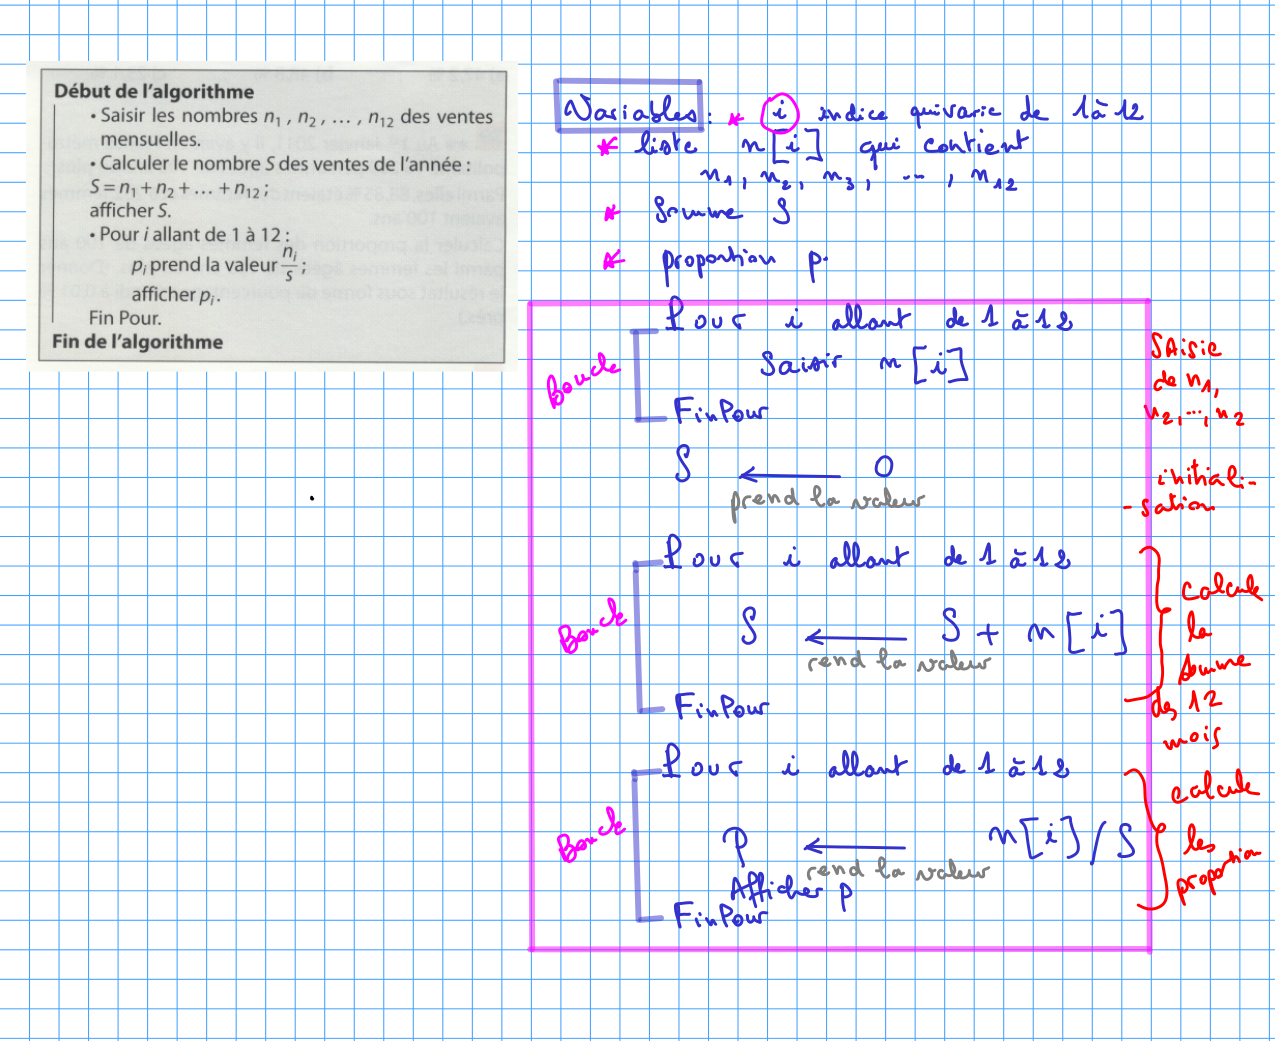 Début de l'algorithme
• Saisir les nombres n₁, n₂, ..., n₁₂ des ventes
mensuelles.
• Calculer le nombre S des ventes de l'année :
S = n₁ + n₂ + ... + n₁₂ ;
afficher S.
• Pour i allant de 1 à 12 :
pᵢ prend la valeur nᵢ/s ;
afficher pᵢ.
Fin Pour.
Fin de l'algorithme
Variables : * i indice qui varie de 1 à 12
* liste n[i] qui contient
n₁, n₂, n₃, ..., n₁₂
* Somme S
* proportion p.
Pour i allant de 1 à 12
Boucle
Saisir n[i]
FinPour
SAisie
de n₁,
n₂, ..., n₂
S ← 0
prend la valeur
initiali-
-sation
Pour i allant de 1 à 12
Boucle
S ← S + n[i]
rend la valeur
FinPour
calcule
la
somme
des 12
mois
Pour i allant de 1 à 12
Boucle
P ← n[i] / S
rend la valeur
Afficher p
FinPour
calcule
les
proportion